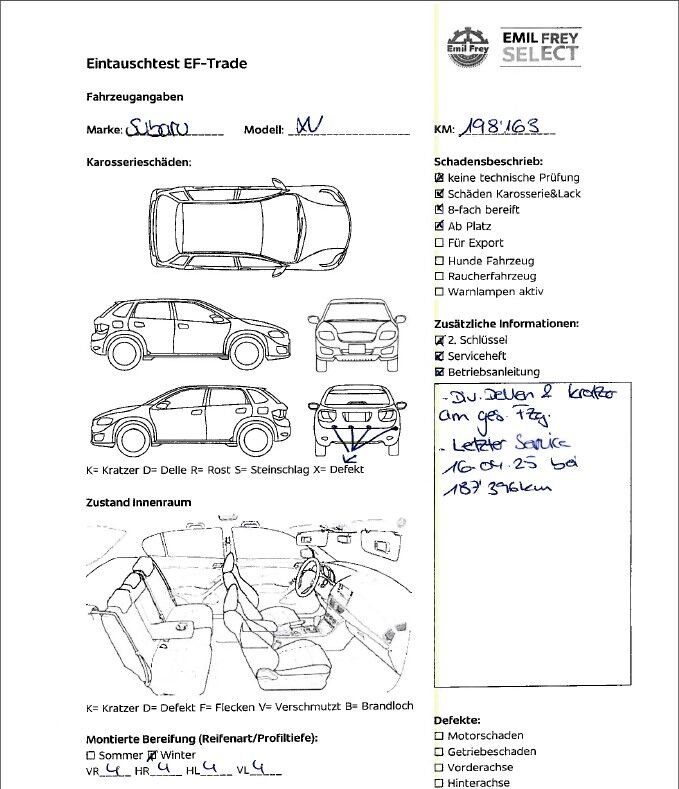 Emil Frey
EMIL FREY
SELECT
Eintauschtest EF-Trade
Fahrzeugangaben
Marke: Subaru Modell: XV KM: 198'163
Karosserieschäden:
K= Kratzer D= Delle R= Rost S= Steinschlag X= Defekt
K
Zustand Innenraum
K= Kratzer D= Defekt F= Flecken V= Verschmutzt B= Brandloch
Montierte Bereifung (Reifenart/Profiltiefe):
☐ Sommer ☒ Winter
VR 4 HR 4 HL 4 VL 4
Schadensbeschrieb:
☒ keine technische Prüfung
☒ Schäden Karosserie&Lack
☒ 8-fach bereift
☒ Ab Platz
☐ Für Export
☐ Hunde Fahrzeug
☐ Raucherfahrzeug
☐ Warnlampen aktiv
Zusätzliche Informationen:
☒ 2. Schlüssel
☒ Serviceheft
☒ Betriebsanleitung
- Div. Dellen & Kratzer
am ges. Fzg.
- Letzter Service
16.04.25 bei
187'396km
Defekte:
☐ Motorschaden
☐ Getriebeschaden
☐ Vorderachse
☐ Hinterachse